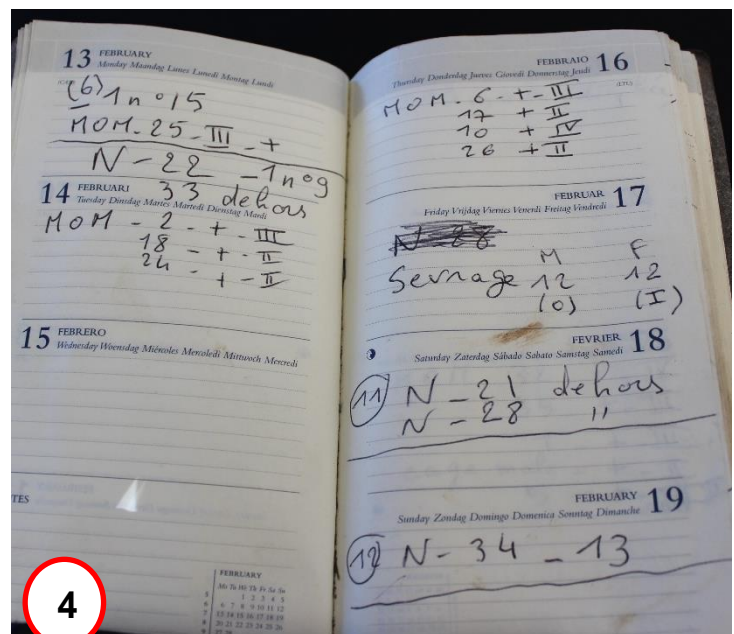 13 FEBRUARY
Monday Maandag Lunes Lunedì Montag Lundi
(6) 1 n° 15
MOM - 25 - III - +
N - 22 - 1 n° 9
33 dehors
14 FEBRUARI
Tuesday Dinsdag Martes Martedì Dienstag Mardi
MOM - 2 - + - III
18 - + - II
24 - + - II
15 FEBRERO
Wednesday Woensdag Miércoles Mercoledì Mittwoch Mercredi
TES
FEBRUARY
Mo Tu We Th Fr Sa Su
1 2 3 4 5
6 7 8 9 10 11 12
13 14 15 16 17 18 19
20 21 22 23 24 25 26
27 28
4
FEBBRAIO 16
Thursday Donderdag Jueves Giovedì Donnerstag Jeudi
MOM - 6 - + - III
17 + II
10 + IV
26 + II
FEBRUAR 17
Friday Vrijdag Viernes Venerdì Freitag Vendredi
M F
Sevrage 12 12
(0) (I)
FEVRIER 18
Saturday Zaterdag Sábado Sabato Samstag Samedi
11 N - 21 dehors
N - 28 "
FEBRUARY 19
Sunday Zondag Domingo Domenica Sonntag Dimanche
12 N - 34 - 13